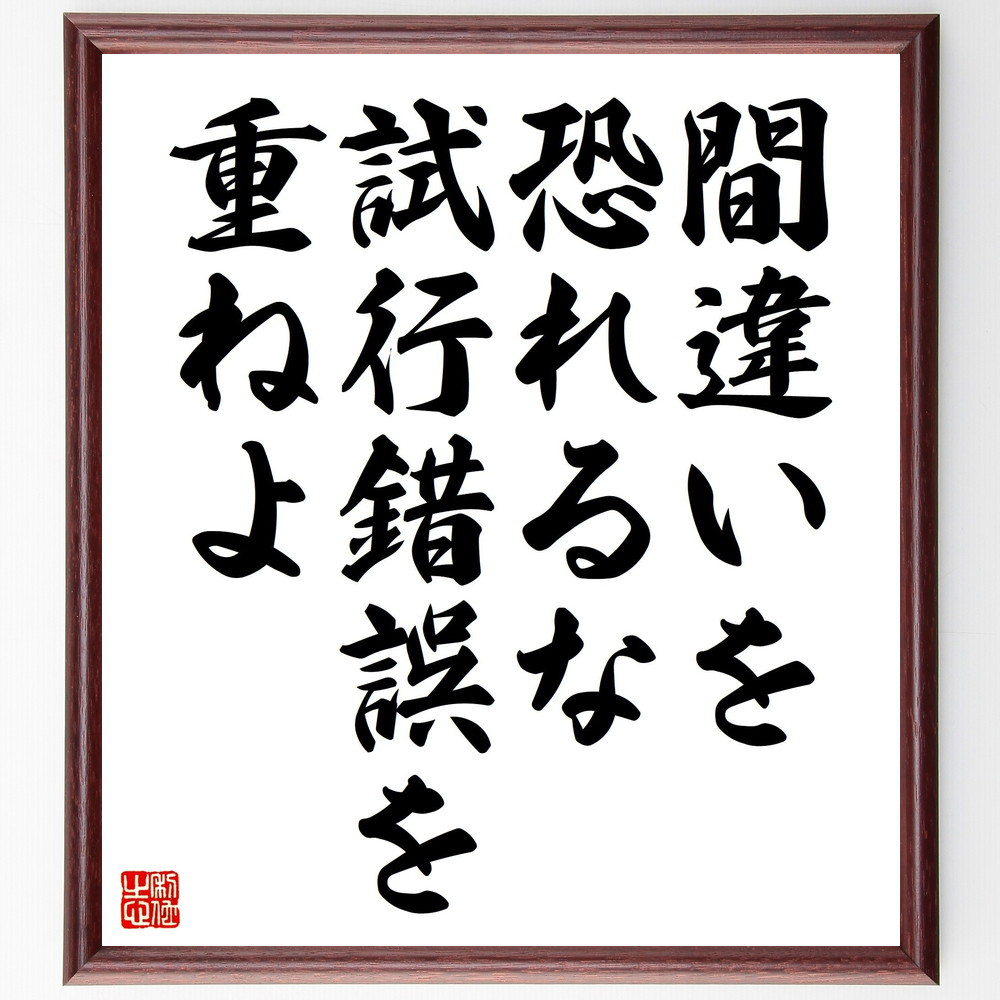 間違いを
恐れるな
試行錯誤を
重ねよ